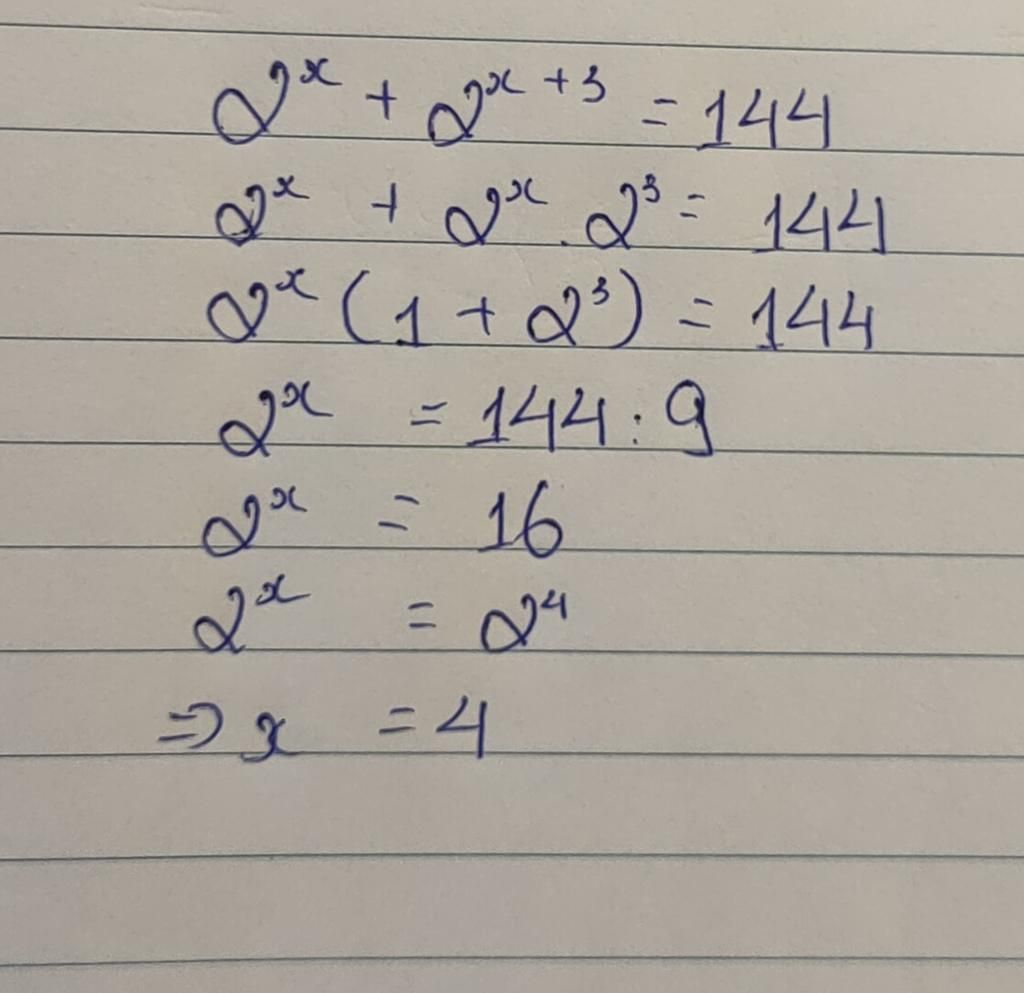 2ˣ + 2ˣ⁺³ = 144
2ˣ + 2ˣ . 2³ = 144
2ˣ (1 + 2³) = 144
2ˣ = 144 : 9
2ˣ = 16
2ˣ = 2⁴
⇒ x = 4